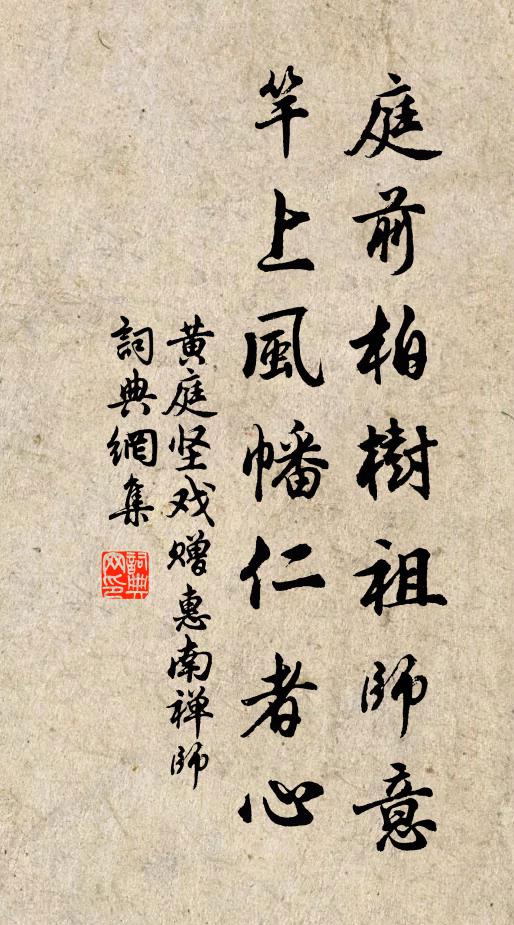 庭前柏樹祖師意
竿上風幡仁者心
黄庭坚戏赠惠南禅师
詞典網集
詞典网印